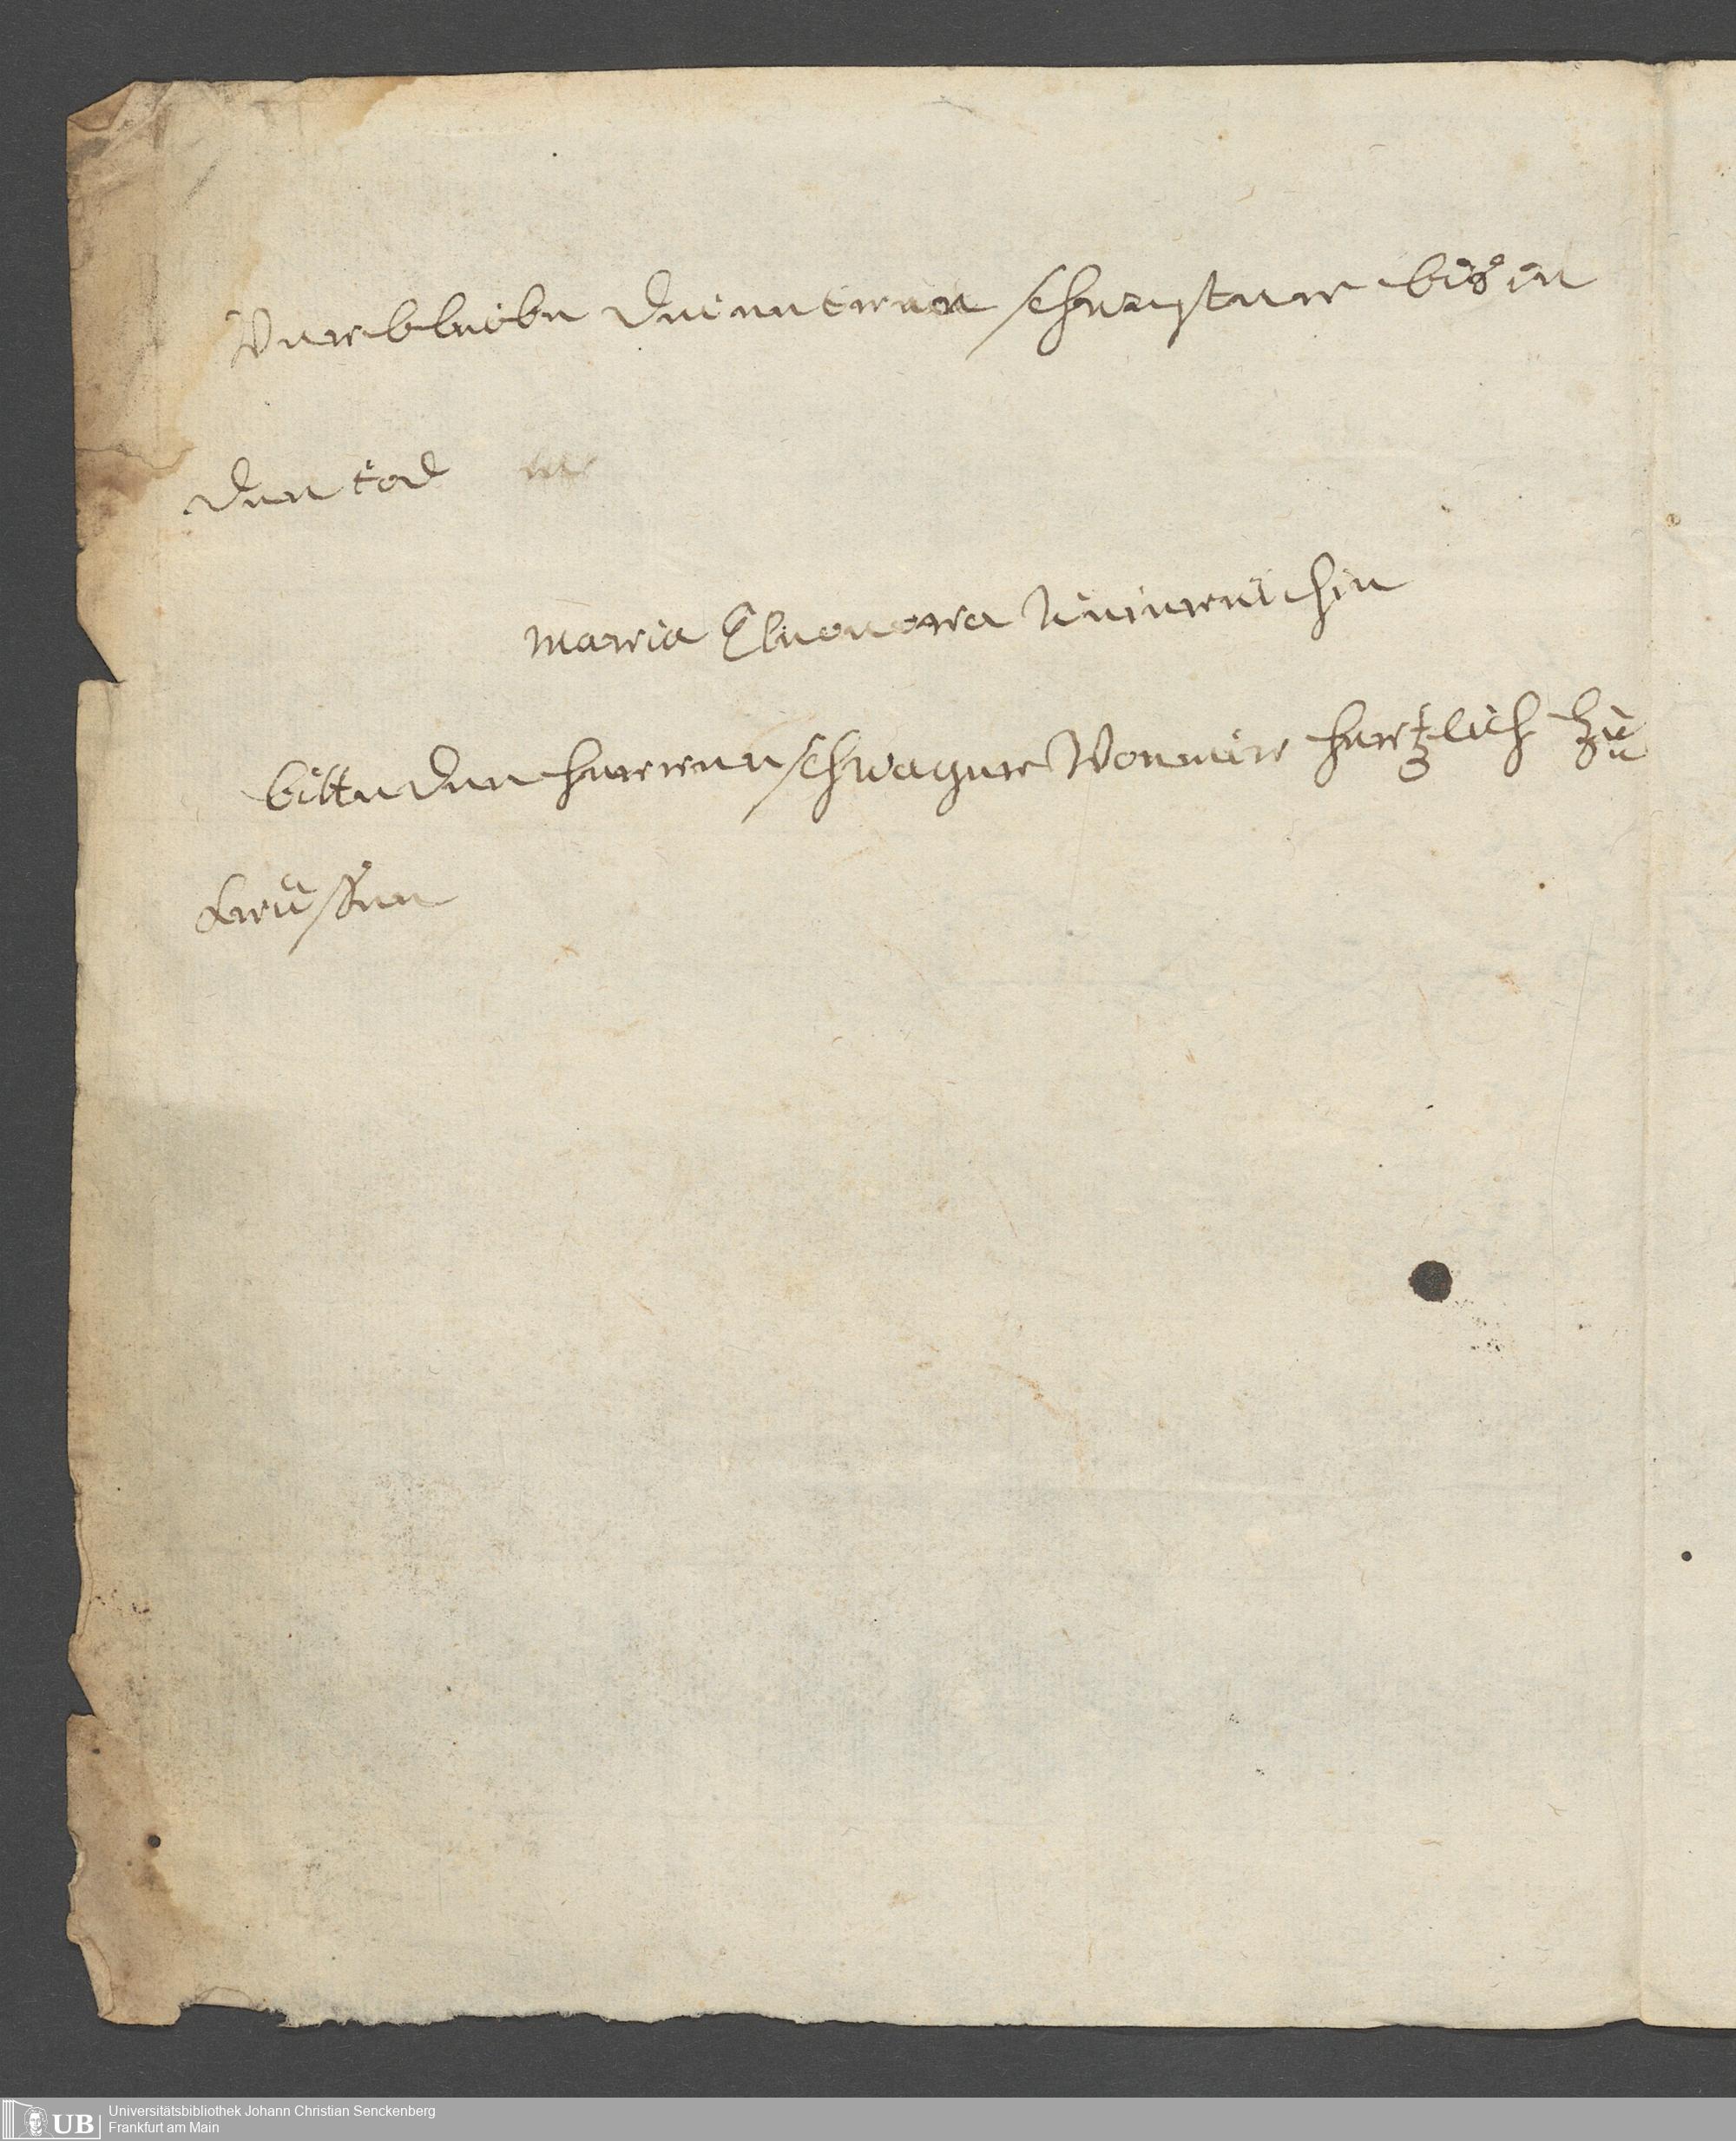 Verbleibe dein treuen schwester bis in
den tod
Maria Eleonora
bitte den herren schwager Von mir hertzlich zu
krüssen
UB
Universitätsbibliothek Johann Christian Senckenberg
Frankfurt am Main